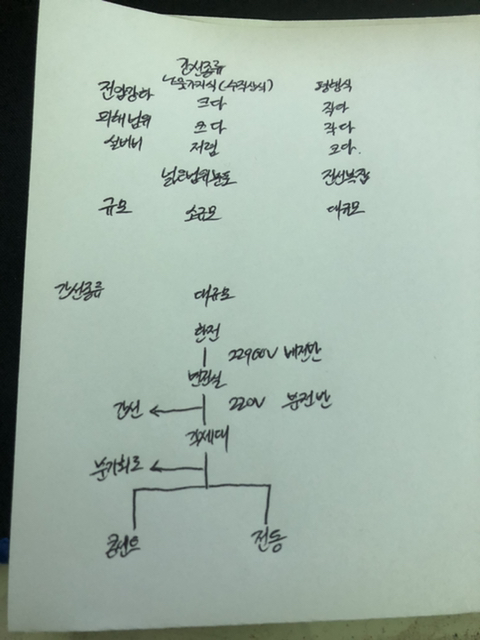 간선종류
나뭇가지식(수직상식) 평행식
전압강하 크다 작다
피해범위 크다 작다
설비비 저렴 크다.
넓은범위분포 전선복잡
규모 소규모 대규모
간선종류 대규모
한전
22900V 배전반
변전실
간선 220V 분전반
각세대
분기회로
콘센트 전등